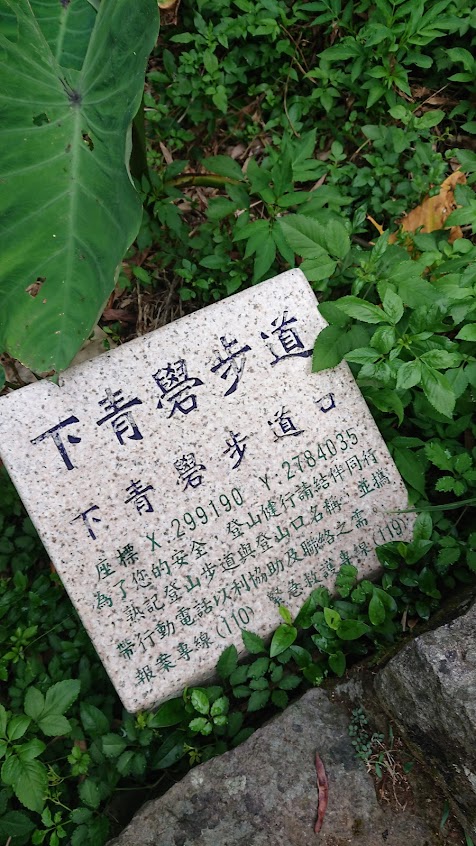 下青礐步道
下青礐步道口
座標 X 299190 Y 2784035
為了您的安全 登山健行請結伴同行
熟記登山步道與登山口名稱，並攜
帶行動電話以利協助及聯絡之需
報案專線(110) 緊急救護專線(119)